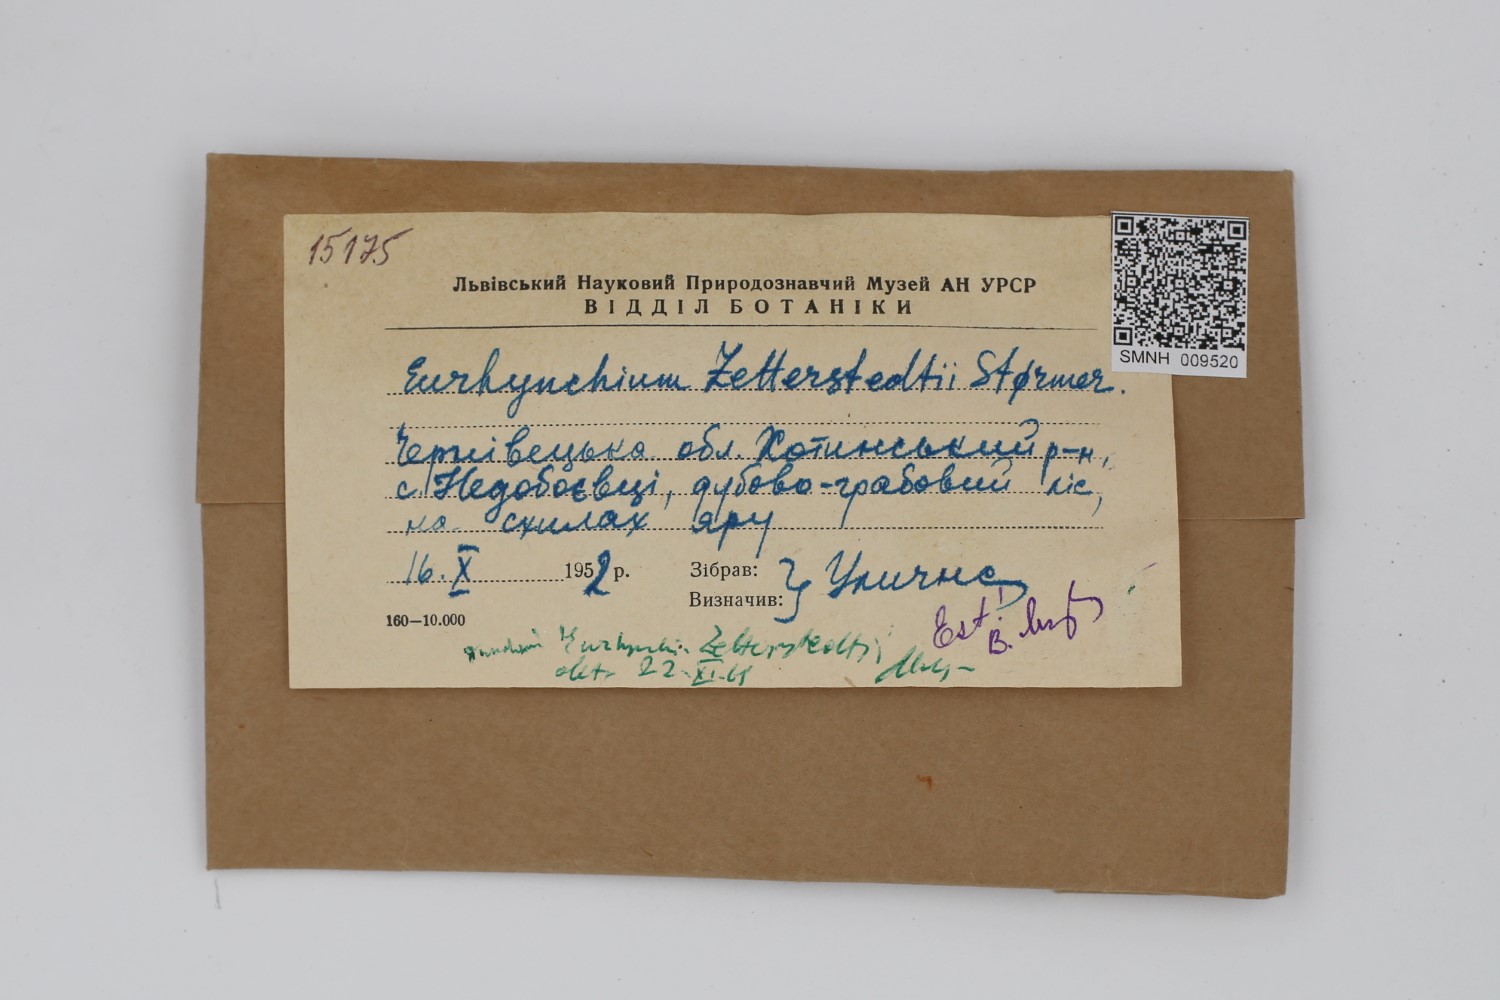 15175
Львівський Науковий Природознавчий Музей АН УРСР
ВІДДІЛ БОТАНІКИ
SMNH 009520
Eurhynchium Zetterstedtii Størmer.
Чернівецька обл. Хотинський р-н,
с. Недобоєвці, дубово-грабовий ліс,
на схилах яру
16.X 1952 р.
Зібрав: Улична
Визначив:
160—10.000
Est!
B.
Eurhynchium Zetterstedtii
det. 22.XI.